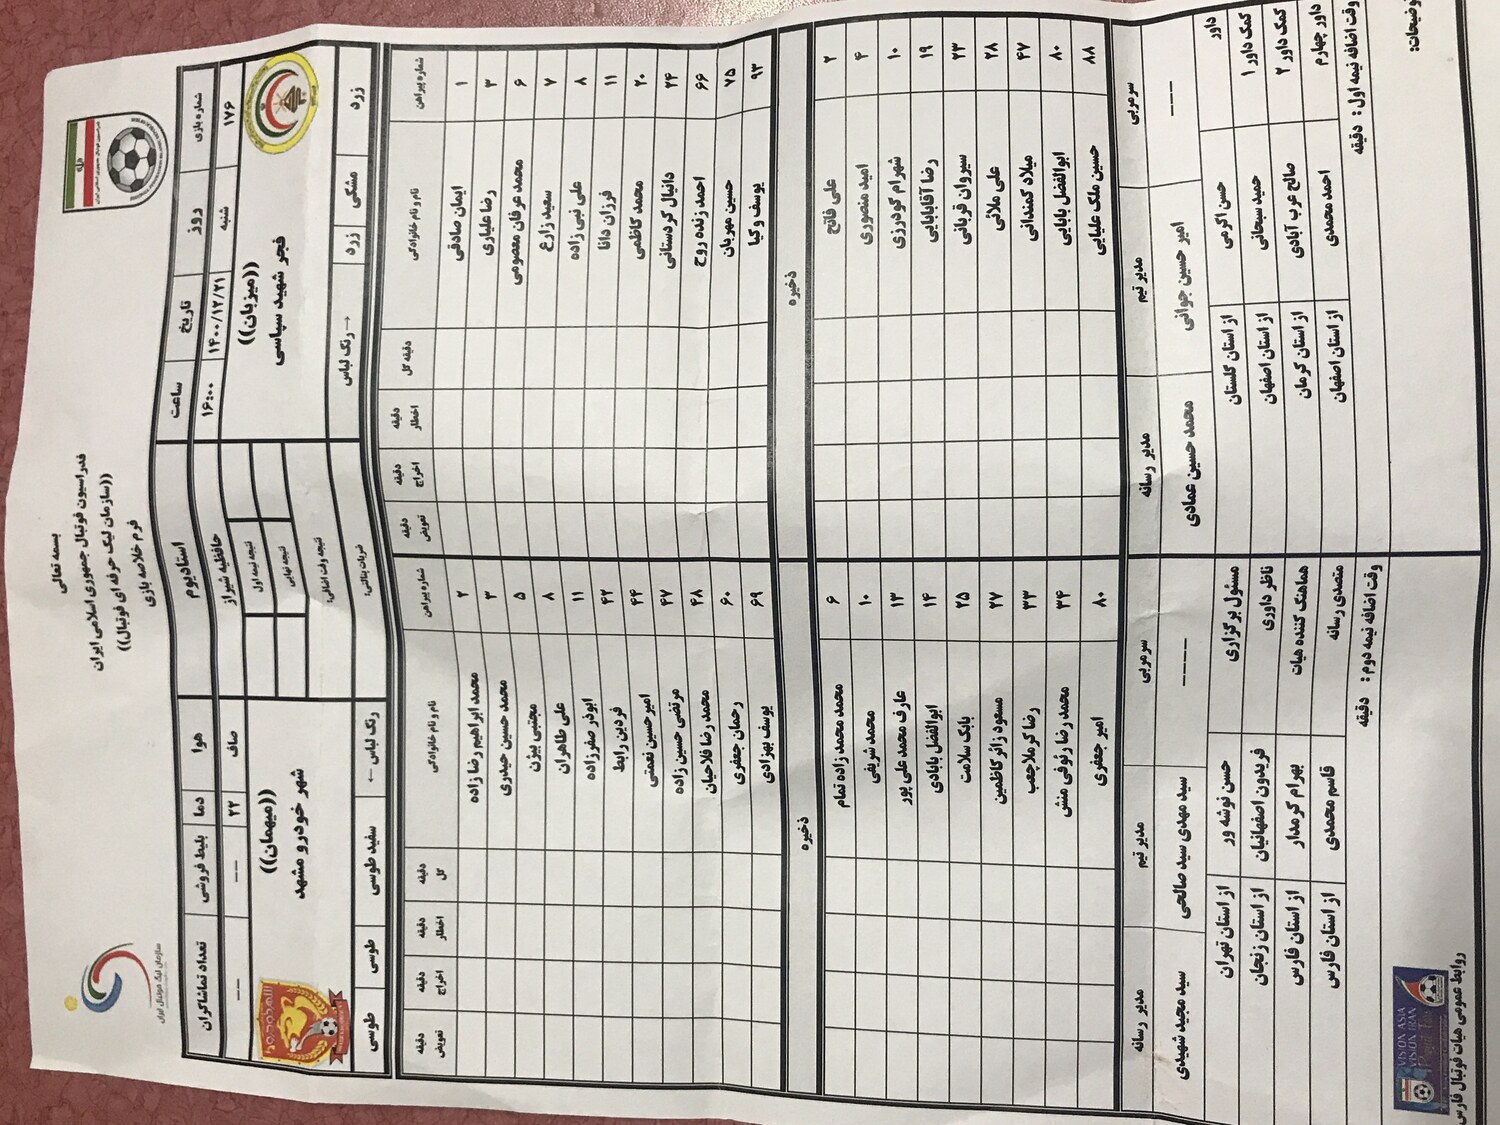 بسمه تعالی
فدراسیون فوتبال جمهوری اسلامی ایران
((سازمان لیگ حرفه ای فوتبال))
فرم خلاصه بازی
سازمان لیگ فوتبال ایران
شماره بازی روز تاریخ ساعت استادیوم هوا دما بلیط فروشی تعداد تماشاگران
۱۷۶ شنبه ۱۴۰۰/۱۲/۲۱ ۱۶:۰۰ حافظیه شیراز صاف ۲۲ --- ---
((میزبان))
فجر شهید سپاسی
نتیجه نیمه اول
نتیجه نهایی
نتیجه وقت اضافی:
ضربات پنالتی:
((میهمان))
شهر خودرو مشهد
زرد مشکی زرد رنگ لباس
رنگ لباس سفید طوسی طوسی طوسی
شماره پیراهن نام و نام خانوادگی دقیقه گل دقیقه اخطار دقیقه اخراج دقیقه تعویض
۱ ایمان صادقی
۳ رضا علیاری
۶ محمد عرفان معصومی
۷ سعید زارع
۸ علی نبی زاده
۱۱ فرزان دانا
۲۰ محمد کاظمی
۲۴ دانیال کردستانی
۶۶ احمد زنده روح
۷۵ حسین مهربان
۹۳ یوسف وکیا
ذخیره
۲ علی فاتح
۴ امید منصوری
۱۰ شهرام گودرزی
۱۹ رضا آقابابایی
۲۳ سیروان قربانی
۲۸ علی ملائی
۴۷ میلاد کمندانی
۸۰ ابوالفضل بابایی
۸۸ حسین ملک علیایی
سرمربی مدیر تیم مدیر رسانه
--- امیر حسین جوانی محمد حسین عمادی
شماره پیراهن نام و نام خانوادگی دقیقه گل دقیقه اخطار دقیقه اخراج دقیقه تعویض
۲ محمد ابراهیم رضا زاده
۳ محمد حسین حیدری
۵ مجتبی بیژن
۸ علی طاهران
۱۱ ابوذر صفرزاده
۴۲ فردین رابط
۴۴ امیرحسین نعمتی
۴۷ مرتضی حسین زاده
۴۸ محمد رضا فلاحیان
۶۰ رحمان جعفری
۶۹ یوسف بهزادی
ذخیره
۶ محمد محمد زاده تمام
۱۰ محمد شریفی
۱۳ عارف محمد علی پور
۱۴ ابوالفضل بابادی
۲۵ بابک سلامت
۲۷ مسعود زائر کاظمین
۳۳ رضا کرملاچعب
۳۴ محمد رضا رئوفی منش
۸۰ امیر جعفری
سرمربی مدیر تیم مدیر رسانه
--- سید مهدی سید صالحی سید مجید شهیدی
داور حسن اکرمی از استان گلستان مسئول برگزاری حسن نوشه ور از استان تهران
کمک داور ۱ حمید سبحانی از استان اصفهان ناظر داوری فریدون اصفهانیان از استان زنجان
کمک داور ۲ صالح عرب آبادی از استان کرمان هماهنگ کننده هیات بهرام کرمدار از استان فارس
داور چهارم احمد محمدی از استان اصفهان متصدی رسانه قاسم محمدی از استان فارس
وقت اضافه نیمه اول: دقیقه وقت اضافه نیمه دوم: دقیقه
وضیحات:
VISION ASIA
VISION IRAN
روابط عمومی هیات فوتبال فارس